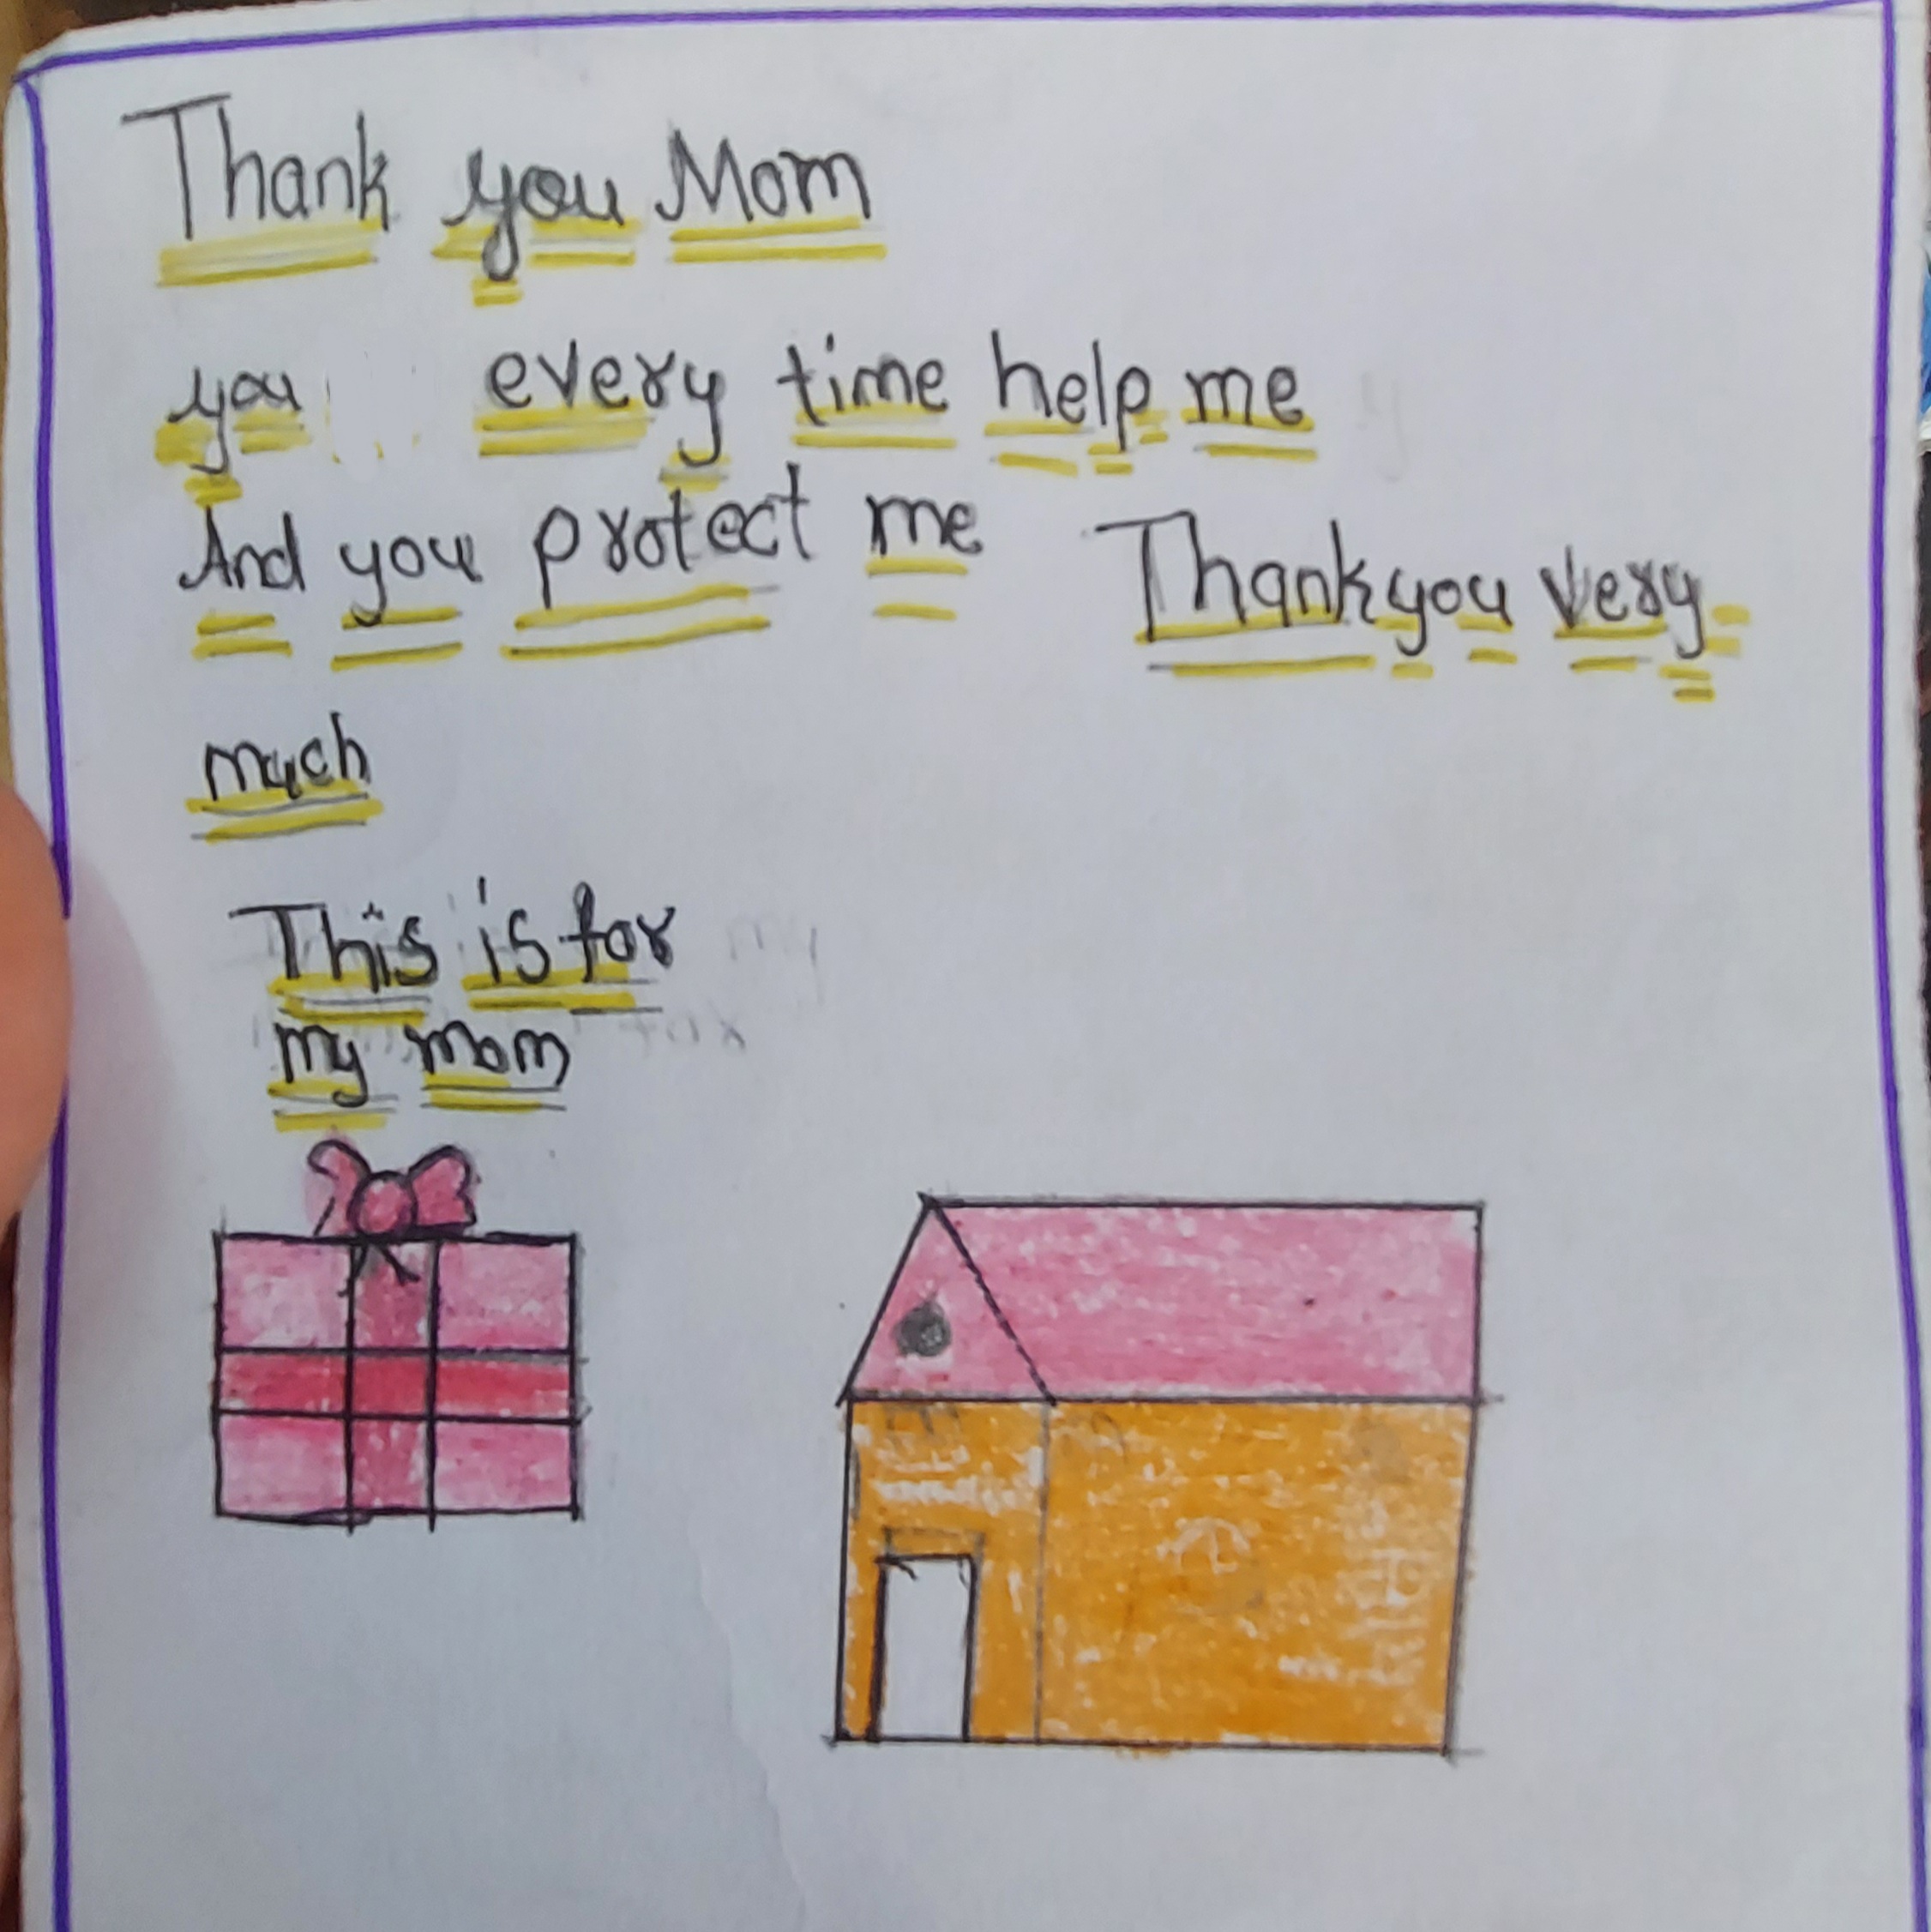 Thank you Mom
you every time help me
And you protect me Thank you very
much
This is for
my mom